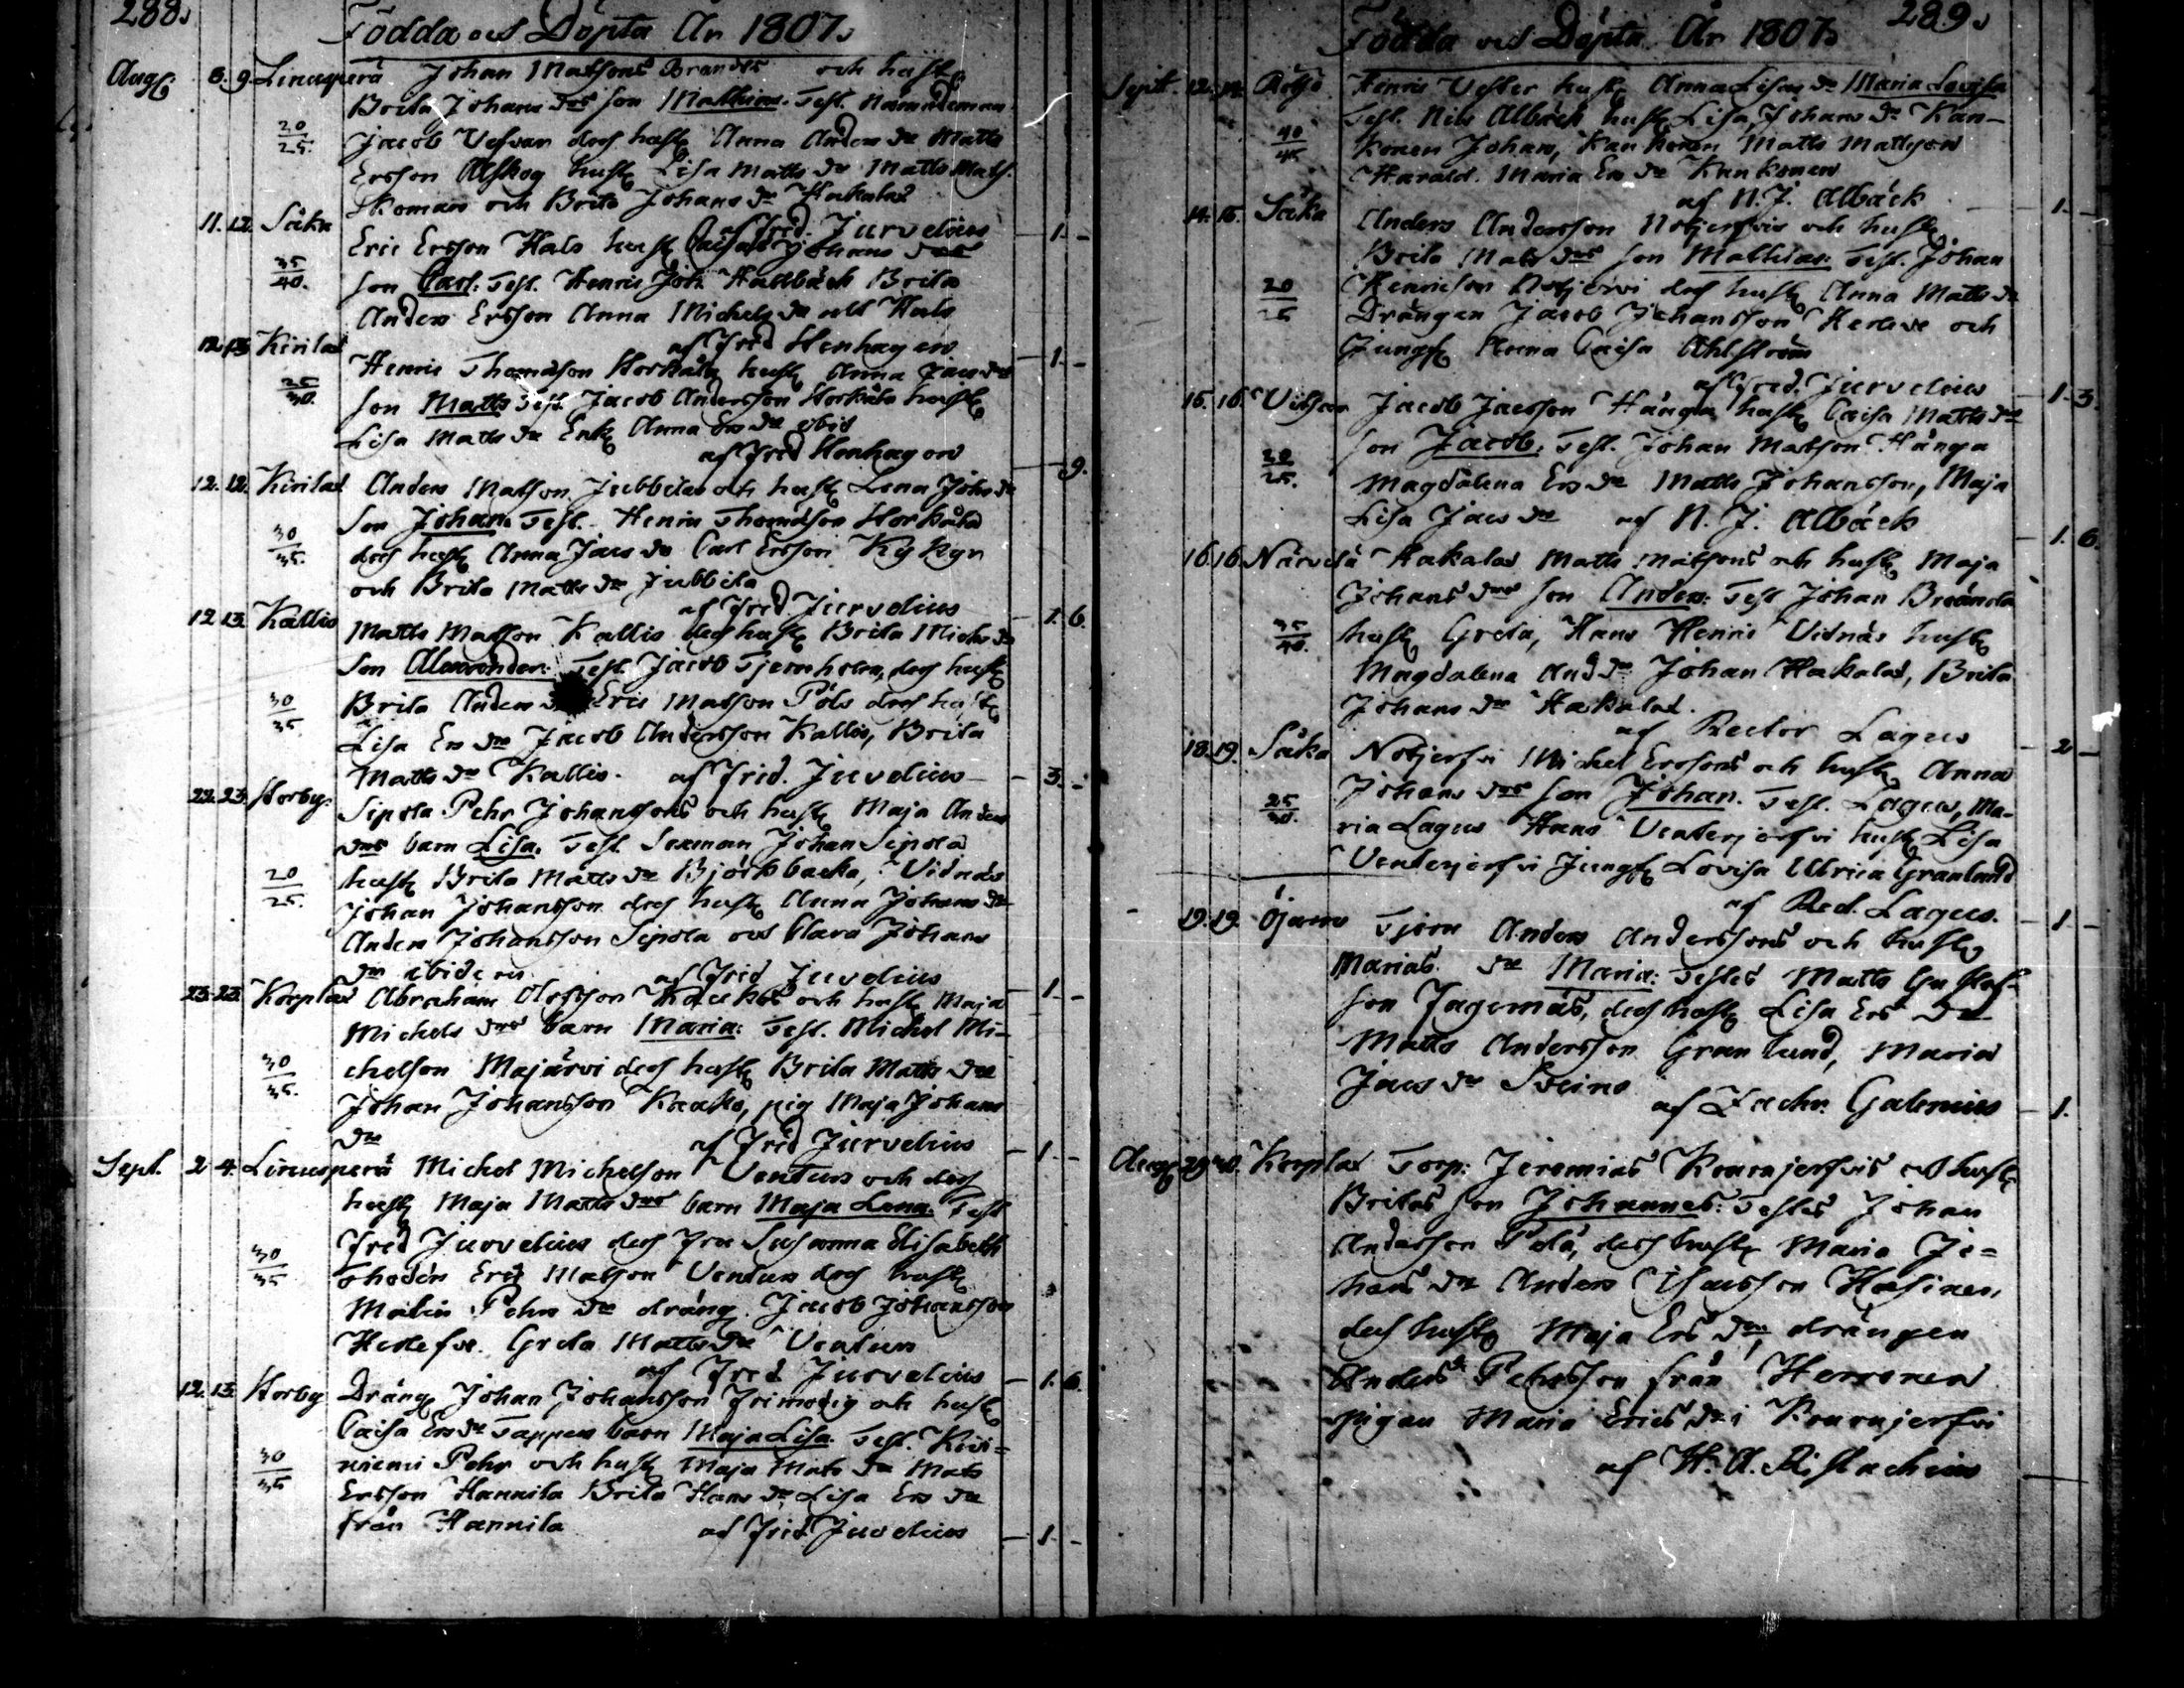 288.
Födda och Döpta År 1807.
Aug. 8. 9. Linusperä Johan Matsons Brandts och hust.
Brita Johans drs son Mathias. Test. Nämndeman
20/25. Jacob Vesvar des hust. Anna Anders dr Matts
Ersson Alskog hust. Lisa Matts dr Matts Mats.
Skomars och Brita Johans dr Hakalax
af Frid. Jurvelius 1. -
11. 12. Såka Eric Ersson Hals hust. Caisas Johans drs
35/40. son Carl. Test. Henric Joh. Hallbäck Brita
Anders Ersson Anna Michels dr alt Hals
af Frid Henhagen 1. -
12. 13. Kirilax Henric Thomasson Horkåla hust. Anna Jacs drs
25/30. son Matts Test. Jacob Andersson Horkåla hust.
Lisa Matts dr Enk. Anna Ers dr ibid
af Frid Henhagen - 9.
12. 12. Kirilax Anders Matson Jubbila och hust. Lena Johs dr
30/35. son Johan. Test. Henric Thomasson Horkåla
des hust. Anna Jacs dr Carl Ersson Kykyri
och Brita Matts dr Jubbila
af Frid. Jurvelius 1. 6.
12 13. Kallis Matts Matson Kallis des hust. Brita Michs drs
son Alexander. Test. Jacob Tjernholm, des hust.
30/35 Brita Anders Eric Matson Påls des hust.
Lisa Ers dr Jacob Andersson Kallis, Brita
Matts dr Kallis. af Frid. Juvelius 3. -
22. 23. Horby. Sipola Pehr Johanssons och hust. Maja Anders
drs barn Lisa. Test. Sexman Johan Sipola
20/25. hust. Brita Matts dr Björkbacka, Vidnäs
Johan Johansson des hust. Anna Johans dr
Anders Johansson Sipola och Clara Johans
dr ibidem af Frid Juvelius 1. -
23. 23. Korplax Abraham Olofsson Kaukos och hust. Maja
Michels drs barn Maria. Test. Michel Mi-
30/35. chelson Majärvi des hust. Brita Matts dr
Johan Johansson Kaako, pig Maja Johans
dr af Frid Jurvelius 1. -
Sept. 2 4. Linusperä Michel Michelson Ventus och des
hust. Maja Matts drs barn Maja Lena. Test
30/35 Frid Jurvelius des Fru Susanna Elisabeth
Thodén Eric Matson Ventus des hust.
Malin Pehrs dr dräng. Jacob Johansson
Herlefve. Greta Matts dr Ventus
af Frid Jurvelius 1. 6.
12. 13. Horby Dräng. Johan Johansson Frimodig och hust.
Caisa Ers dr Tappers barn Maja Lisa. Test. Kivi=
30/35 niemi Pehr och hust. Maja Mats dr Mats
Ersson Hannila Brita Hans dr Lisa Ers dr
från Hannila af Frid. Juvelius 1. -
Födda och Döpta År 1807. 289.
Sept. 12. 14. Henric Vester hust. Anna Lisas dr Maria Lovisa
40/45 Test. Nils Albäck hust. Lisa Johans dr Kan-
konen Johan, Kankonen Matts Mattson
Harald. Maria Ers dr Kankonen
af N. J. Albäck 1. -
14. 15. Såka Anders Andersson Notjerfvis och hust.
Brita Mats drs son Mathias. Test. Johan
20/25 Henricson Notjervi des hust. Anna Matts dr
Drängen Jacob Johansson Herleve och
Jungf. Anna Caisa Ahlström
af Frid. Jurvelius 1. 3.
15. 16. Jacob Jacsson Hänga hust. Caisa Matts drs
20/25. son Jacob. Test. Johan Matson Hänga
Magdalena Ers dr Matts Johansson, Maja
Lisa Jacs dr af N. J. Albäck 1. 6.
16. 16. Närvilä Hakalax Matts Matsons och hust. Maja
Johans drs son Anders. Test Johan Brännla
35/40. hust. Greta, Hans Henric Vidnäs hust.
Magdalena And dr Johan Hakalax, Brita
Johans dr Hakalax.
af Rector Lagus 2 -
18. 19. Såka Notjerfvi Michel Erssons och hust. Anna
Johans drs son Johan. Test. Lagus, Ma-
25/30. ria Lagus Hans Ventusjerfvi hust. Lisa
Ventusjerfvi Jungf. Lovisa Ulrica Granlund
af Rect. Lagus. 1. -
19. 19. Öjamo Tjern Anders Anderssons och hust.
Marias dr Maria. Testes Matts Gustaf-
son Jagernäs, des hust. Lisa Ers dr
Matts Andersson Granlund, Maria
Jacs dr Sveins
af Zachr. Galenius 1.
Aug. 29 30. Korplax Torp: Jeremias Kournjerfvis och hust.
Britas son Johannes. Testes Johan
Andersson Pelå, des hust. Maria Jo=
hans dr Anders Isacsson Hasinen,
des hust. Maja Ers dr, drängen
Anders Pehrsson från Herronen
pigan Maria Erics dr i Kournjerfvi
af H. A. Ristachius